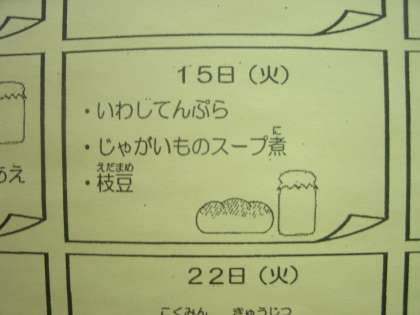 15日（火）
・いわしてんぷら
・じゃがいものスープ煮
に
・枝豆
えだまめ
あえ
22日（火）
こくみん きゅうじつ